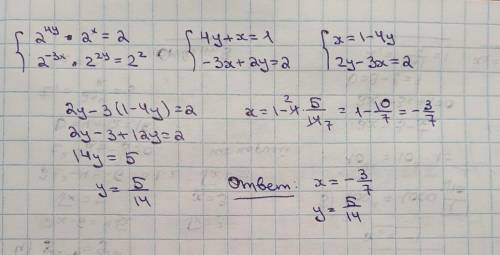 { 2^{4y} • 2^x = 2
2^{-3x} • 2^{2y} = 2^2
{ 4y + x = 1
-3x + 2y = 2
{ x = 1 - 4y
2y - 3x = 2
2y - 3(1 - 4y) = 2
2y - 3 + 12y = 2
14y = 5
y = 5/14
x = 1 - 4̸^2 · 5/1̸4̸_7 = 1 - 10/7 = -3/7
Ответ: x = -3/7
y = 5/14